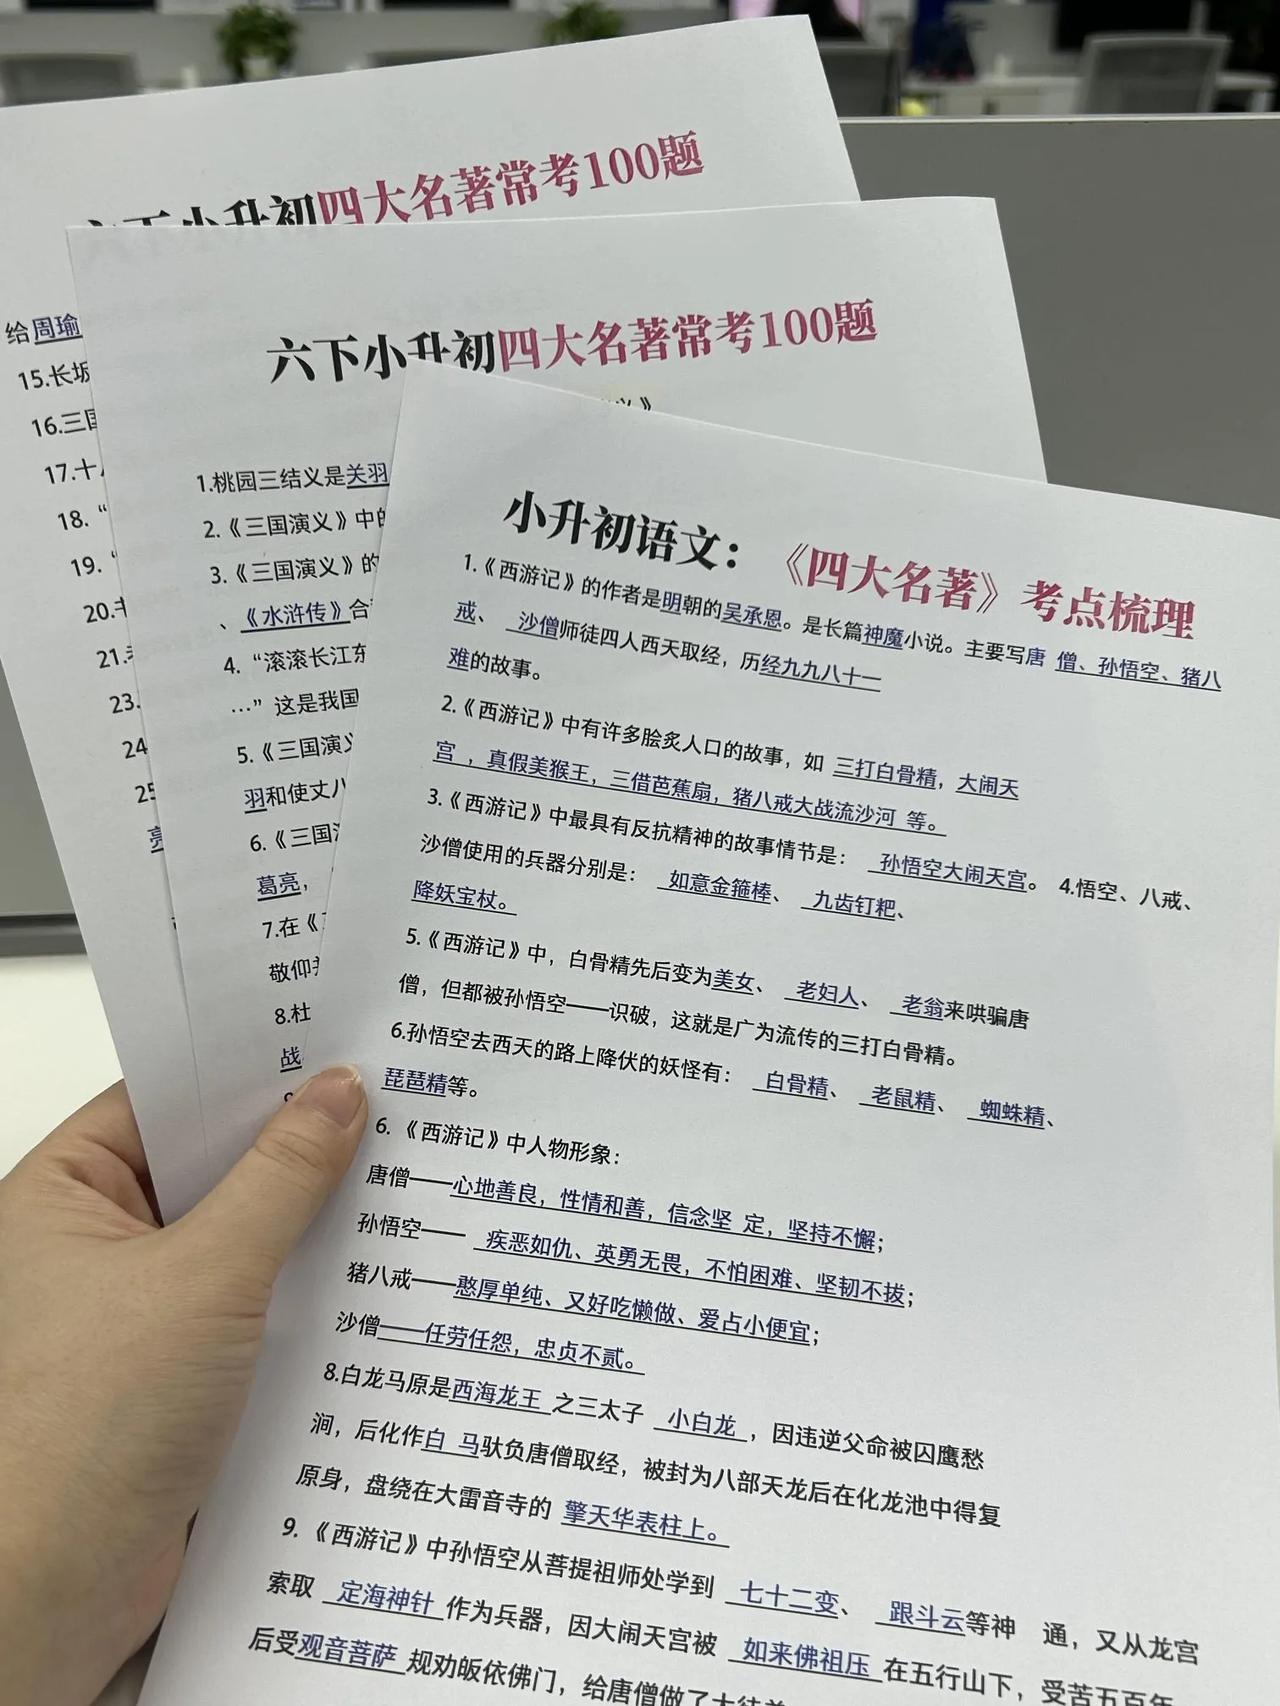 六下小升初四大名著常考100题
给周瑜
15.长坂
16.三国
17.十八
18.“
19.“
20.
21.
23.
24
25
亮
六下小升初四大名著常考100题
演义》
1.桃园三结义是关羽
2.《三国演义》中的
3.《三国演义》的
、《水浒传》合
4.“滚滚长江东
…”这是我国
5.《三国演义
羽和使丈八
6.《三国演
葛亮，
7.在《
敬仰
8.杜
战
9
小升初语文：《四大名著》考点梳理
1.《西游记》的作者是明朝的吴承恩。是长篇神魔小说。主要写唐 僧、孙悟空、猪八
戒、 沙僧师徒四人西天取经，历经九九八十一
难的故事。
2.《西游记》中有许多脍炙人口的故事，如 三打白骨精，大闹天
宫 ，真假美猴王，三借芭蕉扇，猪八戒大战流沙河 等。
3.《西游记》中最具有反抗精神的故事情节是： 孙悟空大闹天宫。 4.悟空、八戒、
沙僧使用的兵器分别是： 如意金箍棒、 九齿钉耙、
降妖宝杖。
5.《西游记》中，白骨精先后变为美女、 老妇人、 老翁来哄骗唐
僧，但都被孙悟空——识破，这就是广为流传的三打白骨精。
6.孙悟空去西天的路上降伏的妖怪有： 白骨精、 老鼠精、 蜘蛛精、
琵琶精等。
6.《西游记》中人物形象：
唐僧——心地善良，性情和善，信念坚 定，坚持不懈；
孙悟空—— 疾恶如仇、英勇无畏，不怕困难、坚韧不拔；
猪八戒——憨厚单纯、又好吃懒做、爱占小便宜；
沙僧——任劳任怨，忠贞不贰。
8.白龙马原是西海龙王 之三太子 小白龙 ，因违逆父命被囚鹰愁
涧，后化作白 马驮负唐僧取经，被封为八部天龙后在化龙池中得复
原身，盘绕在大雷音寺的 擎天华表柱上。
9.《西游记》中孙悟空从菩提祖师处学到 七十二变、 跟斗云等神 通，又从龙宫
索取 定海神针 作为兵器，因大闹天宫被 如来佛祖压 在五行山下，受苦五百年
后受观音菩萨 规劝皈依佛门，给唐僧做了大徒弟